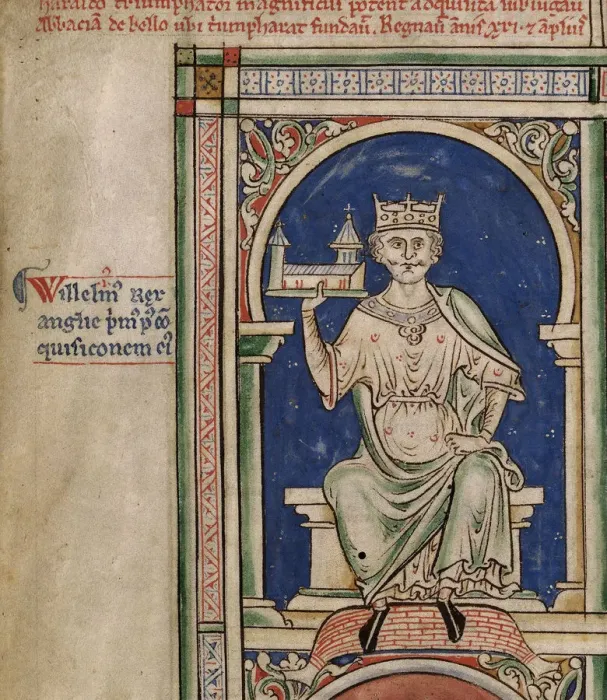 haraldo triumphator magnificus potent adquisita subiugau
Abbaciā de bello ubi triumpharat fundaū. Regnaū anis xxi. ⁊ aplius
Willelmꝰ Rex
anglie pmꝰ p cō
quisiconem ei